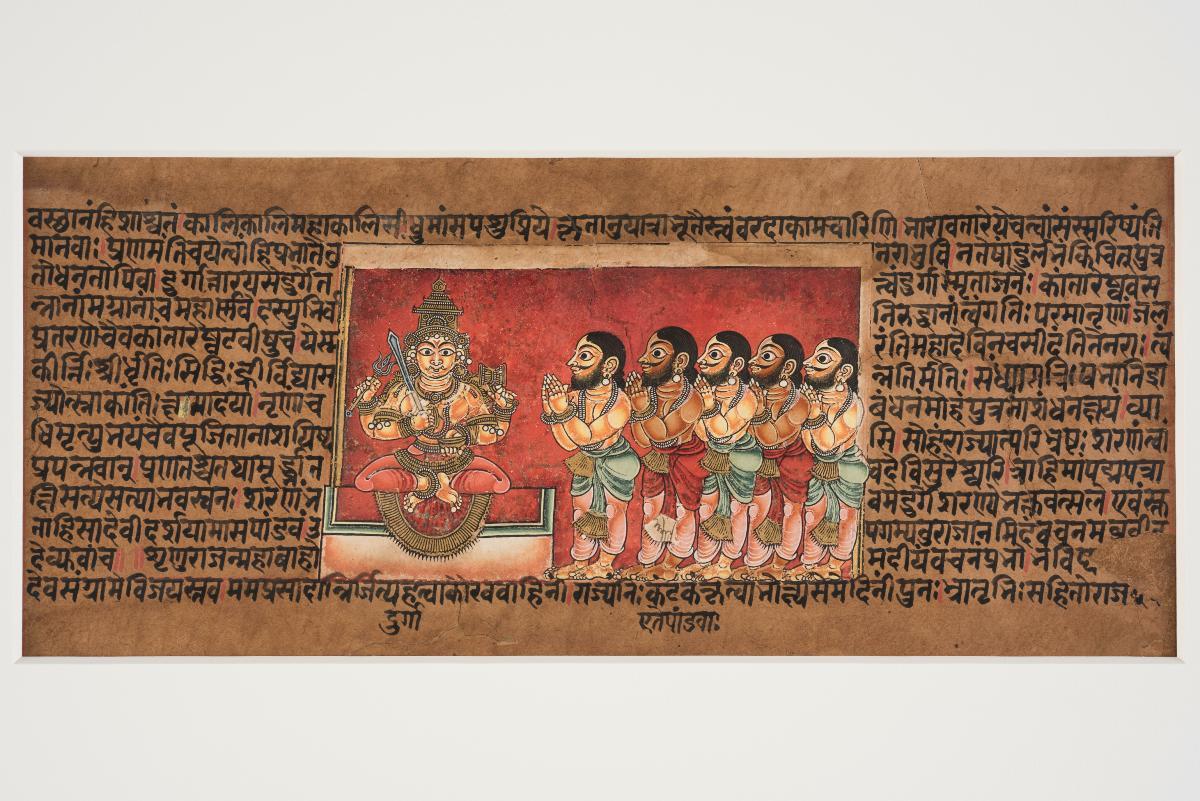 वस्छानंहिशाश्वतं।कालिकालिमहाकालिसीधुमांसपशुप्रिये।कृतानुयात्राभूतैस्त्वंवरदाकामचारिणि।भारावतारेयेचत्वांसंस्मरिष्यंति
मानवाः।प्रणमंतिचयेत्वांहिप्रभातेतु नराभुवि।नतेषांदुर्लभंकिंचित्पुत्र
तोधनतोपिवा।दुर्गात्तारयसेदुर्गेत त्त्वंदुर्गास्मृताजनैः।कांतारेष्ववस
न्नानांमग्नानांचमहार्णवे।दस्युभिर्वा निरुद्धानांत्वंगतिःपरमानृणां।जल
प्रतरणेचैवकांतारेष्वटवीषुच।येस्म रंतिमहादेविनचसीदंतितेनराः।त्वं
कीर्त्तिःश्रीर्धृतिःसिद्धिःह्रीर्विद्यासं न्नतिर्मतिः।संध्यारात्रिःप्रभानिद्रा
ज्योत्स्नाकांतिःक्षमादया।नृणांच बंधनंमोहंपुत्रनाशंधनक्षयं।व्या
धिमृत्युभयंचैवपूजितानाशयिष्य सि।सोहंराज्यात्परिभ्रष्टःशरणंत्वां
प्रपन्नवान्।प्रणतश्चयथामूर्द्ध्नात वदेविसुरेश्वरि।त्राहिमांपद्मपत्रा
क्षिसत्येसत्याभवस्वनः।शरणंभ वमेदुर्गेशरण्येभक्तवत्सले।एवंस्तु
ताहिसादेवीदर्शयामासपांडवं।उ पगम्यतुराजानमिदंवचनमब्रवीत
देव्युवाच॥शृणुराजन्महाबाहो मदीयंवचनंप्रभो।भविष्
देवसंग्रामेविजयस्तव।ममप्रसादान्निर्जित्यहत्वाकौरववाहिनीं।राज्यंनिःकंटकंकृत्वाभोक्ष्यसेमेदिनींपुनः।भ्रातृभिःसहितोराज
दुर्गा
एतेपांडवाः